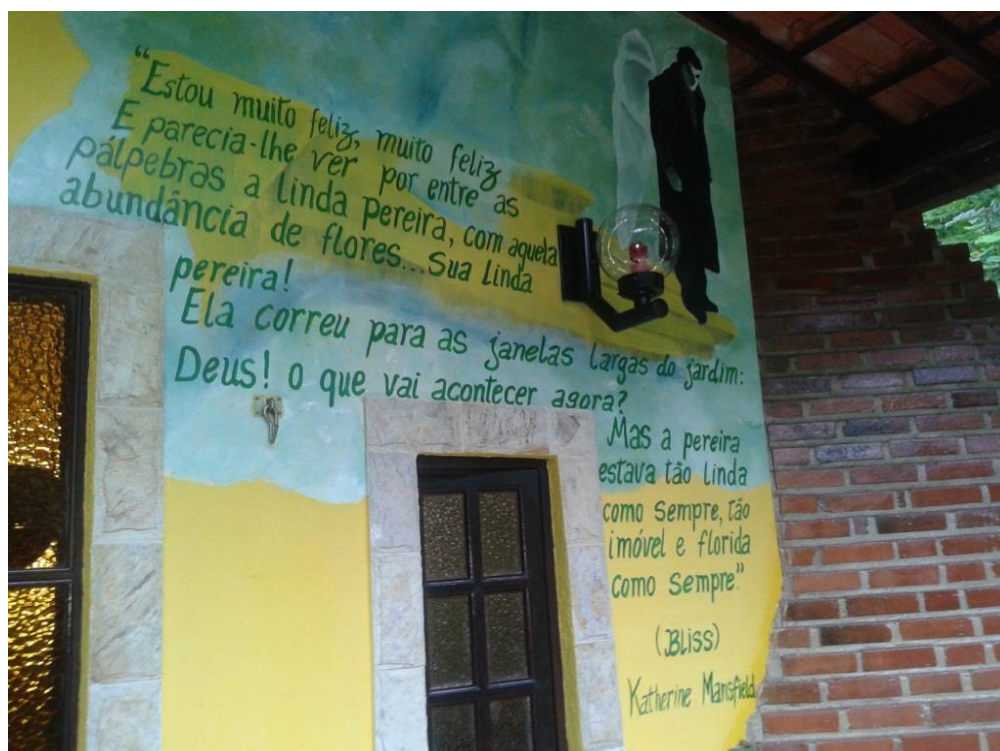 "Estou muito feliz, muito feliz
E parecia-lhe ver por entre as
pálpebras a linda pereira, com aquela
abundância de flores... Sua linda
pereira!
Ela correu para as janelas largas do jardim:
Deus! o que vai acontecer agora?
Mas a pereira
estava tão linda
como sempre, tão
imóvel e florida
como sempre"
(Bliss)
Katherine Mansfield